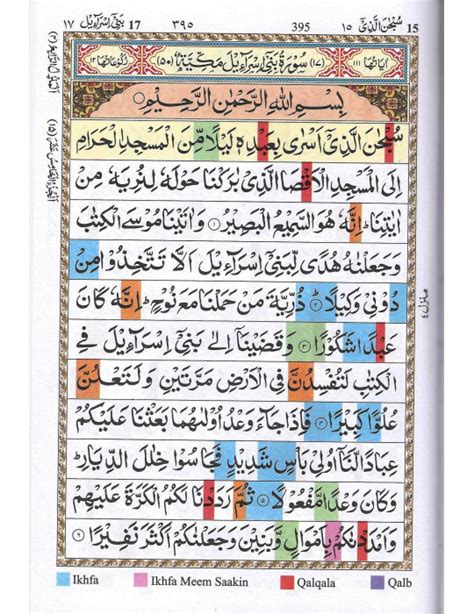 ١٧ بَنِيْٓ اِسْرَآءِيْل 17 ٣٩٥ 395 سُبْحٰنَ الَّذِيْٓ ١٥ 15
اٰيَاتُهَا ١١١ (١٧) سُوْرَةُ بَنِيْٓ اِسْرَآءِيْلَ مَكِّيَّةٌ (٥٠) رُكُوْعَاتُهَا ١٢
بِسْمِ اللّٰهِ الرَّحْمٰنِ الرَّحِيْمِ
سُبْحٰنَ الَّذِيْٓ اَسْرٰى بِعَبْدِهٖ لَيْلًا مِّنَ الْمَسْجِدِ الْحَرَامِ
اِلَى الْمَسْجِدِ الْاَقْصَا الَّذِيْ بٰرَكْنَا حَوْلَهٗ لِنُرِيَهٗ مِنْ
اٰيٰتِنَا ؕ اِنَّهٗ هُوَ السَّمِيْعُ الْبَصِيْرُ ۝١ وَاٰتَيْنَا مُوْسَى الْكِتٰبَ
وَجَعَلْنٰهُ هُدًى لِّبَنِيْٓ اِسْرَآءِيْلَ اَلَّا تَتَّخِذُوْا مِنْ
دُوْنِيْ وَكِيْلًا ۝٢ ذُرِّيَّةَ مَنْ حَمَلْنَا مَعَ نُوْحٍ ؕ اِنَّهٗ كَانَ
عَبْدًا شَكُوْرًا ۝٣ وَقَضَيْنَآ اِلٰى بَنِيْٓ اِسْرَآءِيْلَ فِي
الْكِتٰبِ لَتُفْسِدُنَّ فِي الْاَرْضِ مَرَّتَيْنِ وَلَتَعْلُنَّ
عُلُوًّا كَبِيْرًا ۝٤ فَاِذَا جَآءَ وَعْدُ اُوْلٰىهُمَا بَعَثْنَا عَلَيْكُمْ
عِبَادًا لَّنَآ اُولِيْ بَاْسٍ شَدِيْدٍ فَجَاسُوْا خِلٰلَ الدِّيَارِ ؕ
وَكَانَ وَعْدًا مَّفْعُوْلًا ۝٥ ثُمَّ رَدَدْنَا لَكُمُ الْكَرَّةَ عَلَيْهِمْ
وَاَمْدَدْنٰكُمْ بِاَمْوَالٍ وَّبَنِيْنَ وَجَعَلْنٰكُمْ اَكْثَرَ نَفِيْرًا ۝٦
منزل ٤
Ikhfa Ikhfa Meem Saakin Qalqala Qalb